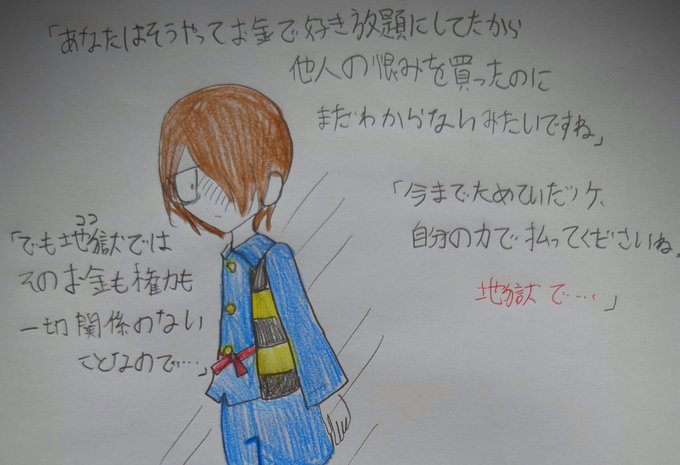 「あなたはそうやってお金で好き放題にしてたから
他人の恨みを買ったのに
まだわからないみたいですね」
「でも地獄では
ココ
そのお金も権力も
一切関係のない
ことなので…」
「今までためていたツケ、
自分の力で払ってくださいね。
地獄で……」